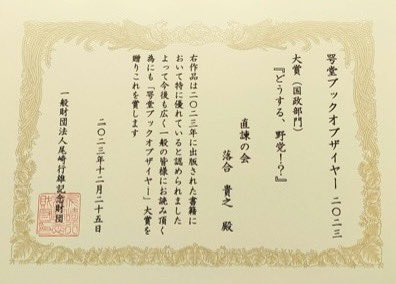 咢堂ブックオブザイヤー 二〇二三
大賞(国政部門)
『どうする、野党!?』
直諫の会
落合 貴之 殿
右作品は二〇二三年に出版された書籍に
おいて特に優れていると認められました
よって今後も広く一般の皆様にお読み頂く
為にも「咢堂ブックオブザイヤー」大賞を
贈りこれを賞します
二〇二三年十二月二十五日
一般財団法人尾崎行雄記念財団